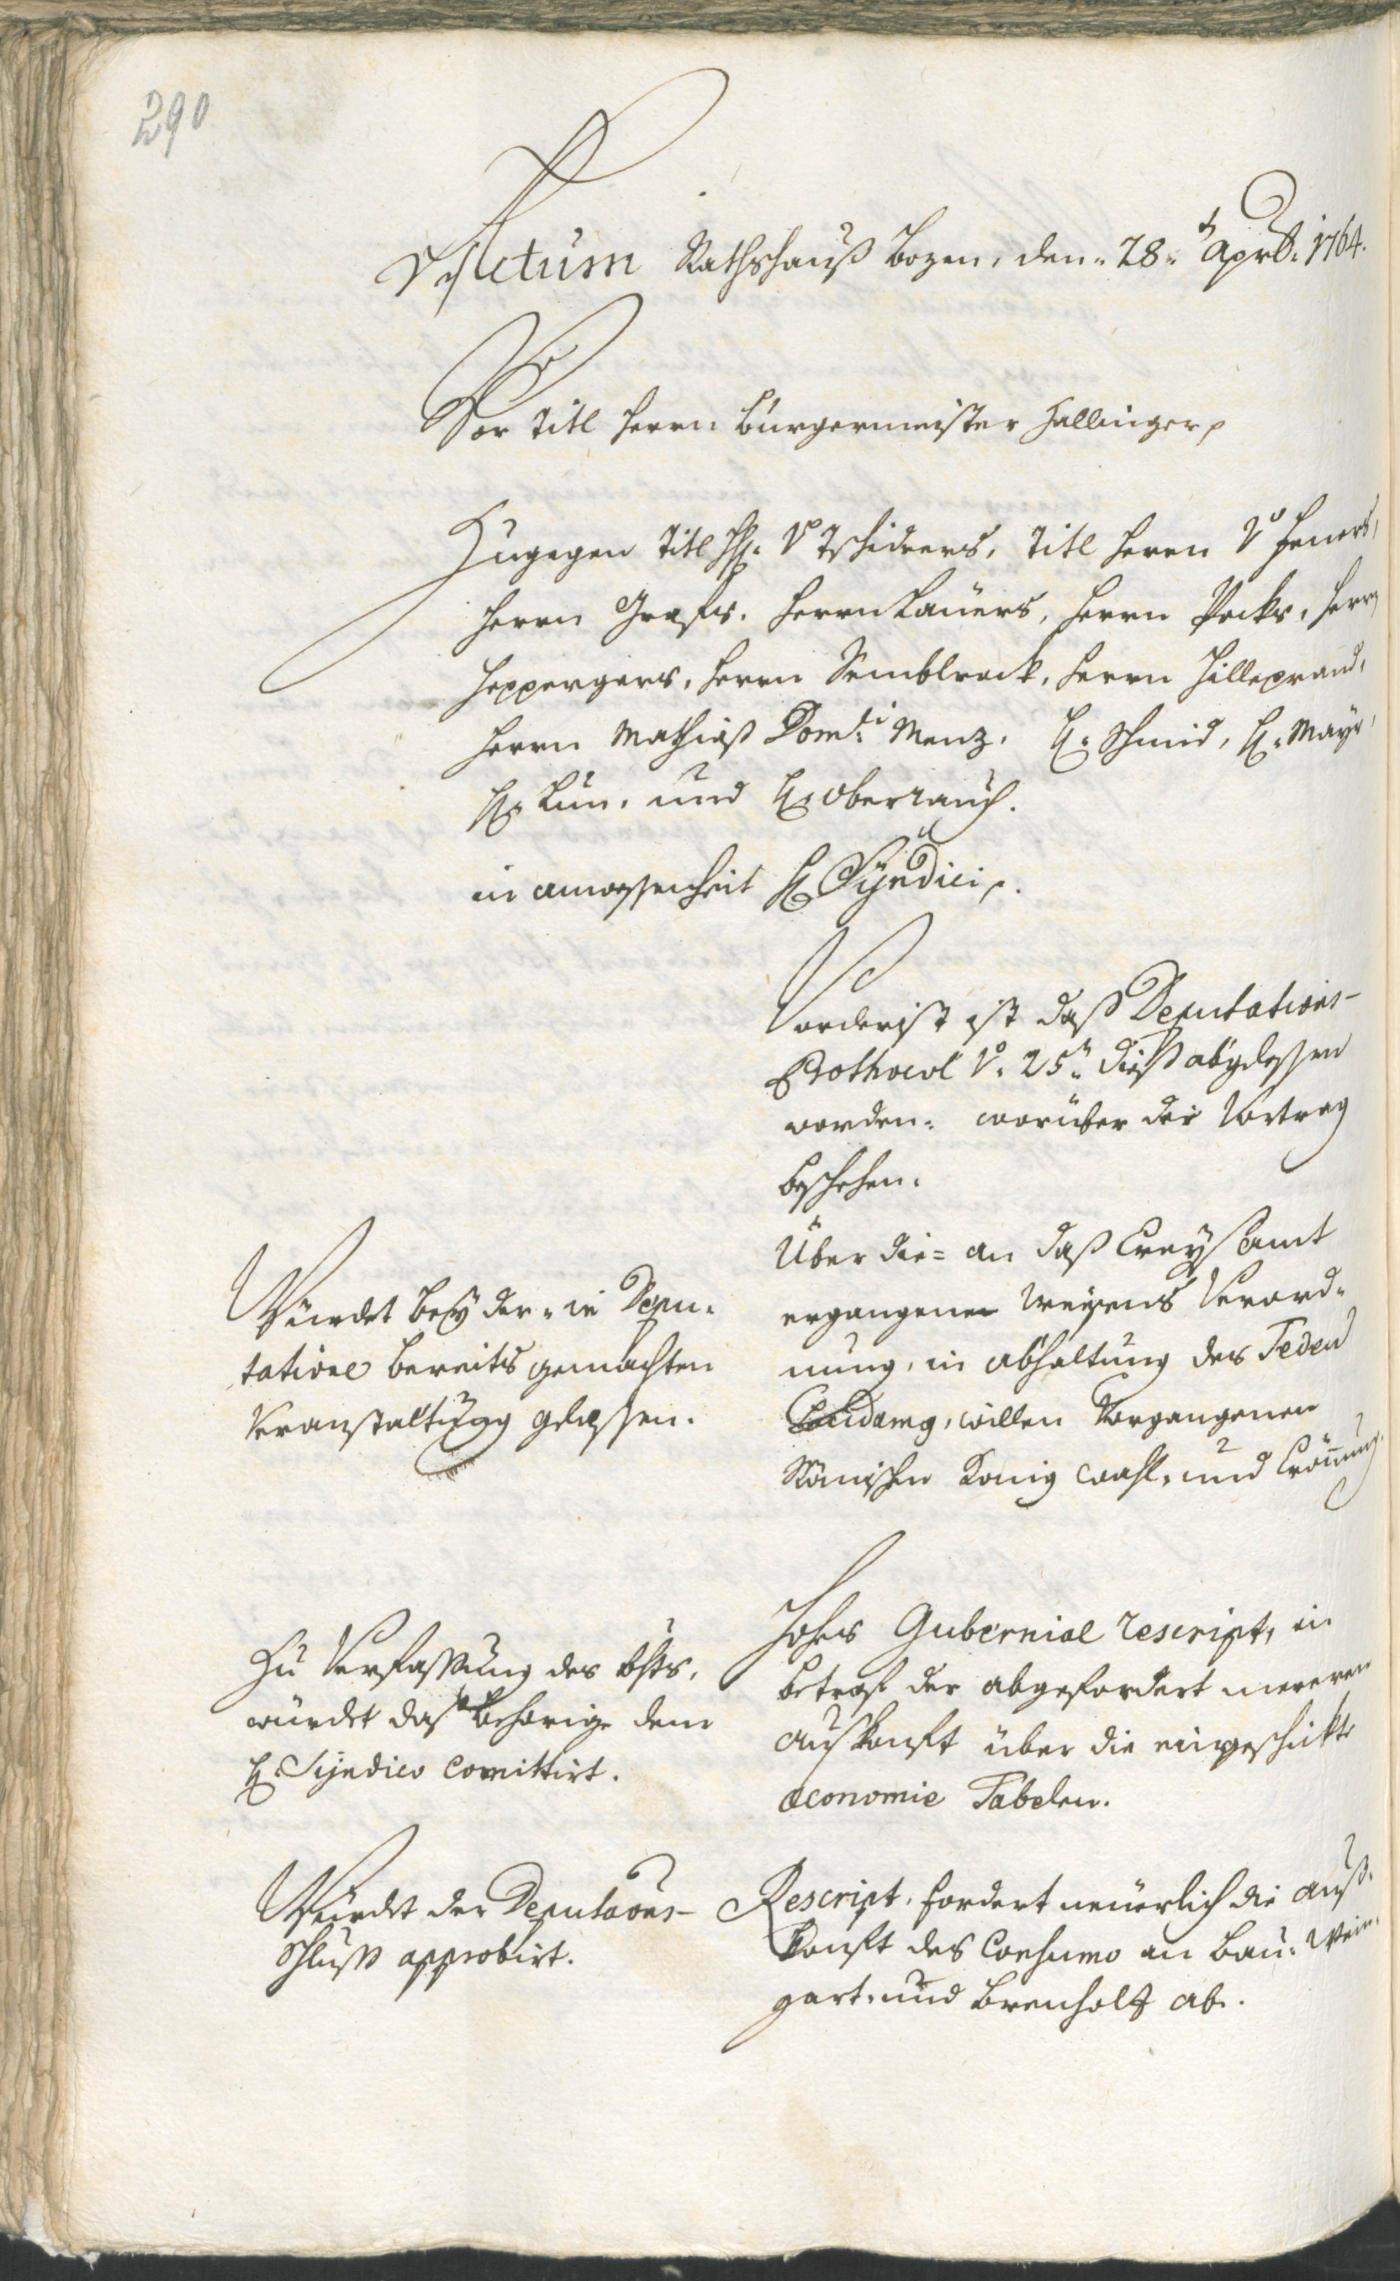 290
Actum Rathshauß Bozen, den 28. Aprl: 1764.
Vor Titl Herrn Bürgermeister Hallinger
Zugegen Titl Hh: V: Tschiderers, Titl Herrn V:
Herrn Grafs, Herrn Lauers, Herrn Pocks, Herrn
Heppergers, Herrn Semblrock, Herrn Hilleprand,
Herrn Mathias Dom: Menz, H: Schmid, H: Mayr,
H: Lun, und H: Oberrauch.
in anwesenheit H: Syndici
Vorderist ist daß Deputations-
Prothocol V: 25:ten dieß abgelessen
worden: worüber der Vortrag
beschehen.
Über die= an daß Creysamt
ergangenen weesens Verord-
nung, in abhaltung des Tedeu
Laudamg, willen Vorgangenen
Römischen König wahl, und Crönung.
Würdet bey der= in Depu-
tatione bereits gemachten
Veranstaltung gelassen.
Hohes Gubernial rescript, in
betref der abgefordert mereren
auskonft über die eingeschickte
œconomie Tabelen.
Zu Verfassung des
würdet daß Behörige dem
H: Syndico Comittirt.
Rescript, fordert neuerlich die auß-
konft des Consumo an Bau= Wein-
gart= und Brenholz ab.
Würdet der Deputaons-
schluß approbirt.